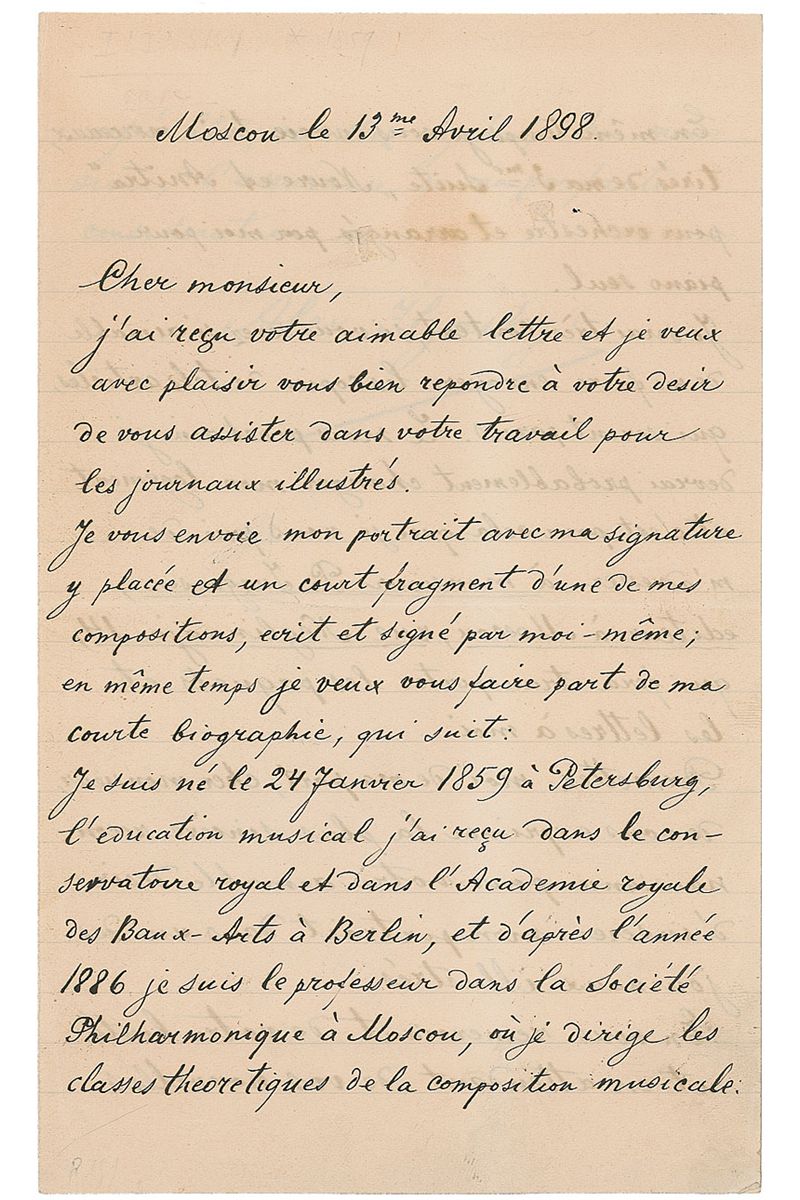 Moscou le 13me Avril 1898.
Cher monsieur,
j'ai reçu votre aimable lettre et je veux
avec plaisir vous bien repondre à votre desir
de vous assister dans votre travail pour
les journaux illustrés.
Je vous envoie mon portrait avec ma signature
y placée et un court fragment d'une de mes
compositions, ecrit et signé par moi-même;
en même temps je veux vous faire part de ma
courte biographie, qui suit:
Je suis né le 24 Janvier 1859 à Petersburg,
l'education musical j'ai reçu dans le con-
servatoire royal et dans l'Academie royale
des Baux-Arts à Berlin, et d'après l'année
1886 je suis le professeur dans la Société
Philharmonique à Moscou, où je dirige les
classes theoretiques de la composition musicale.